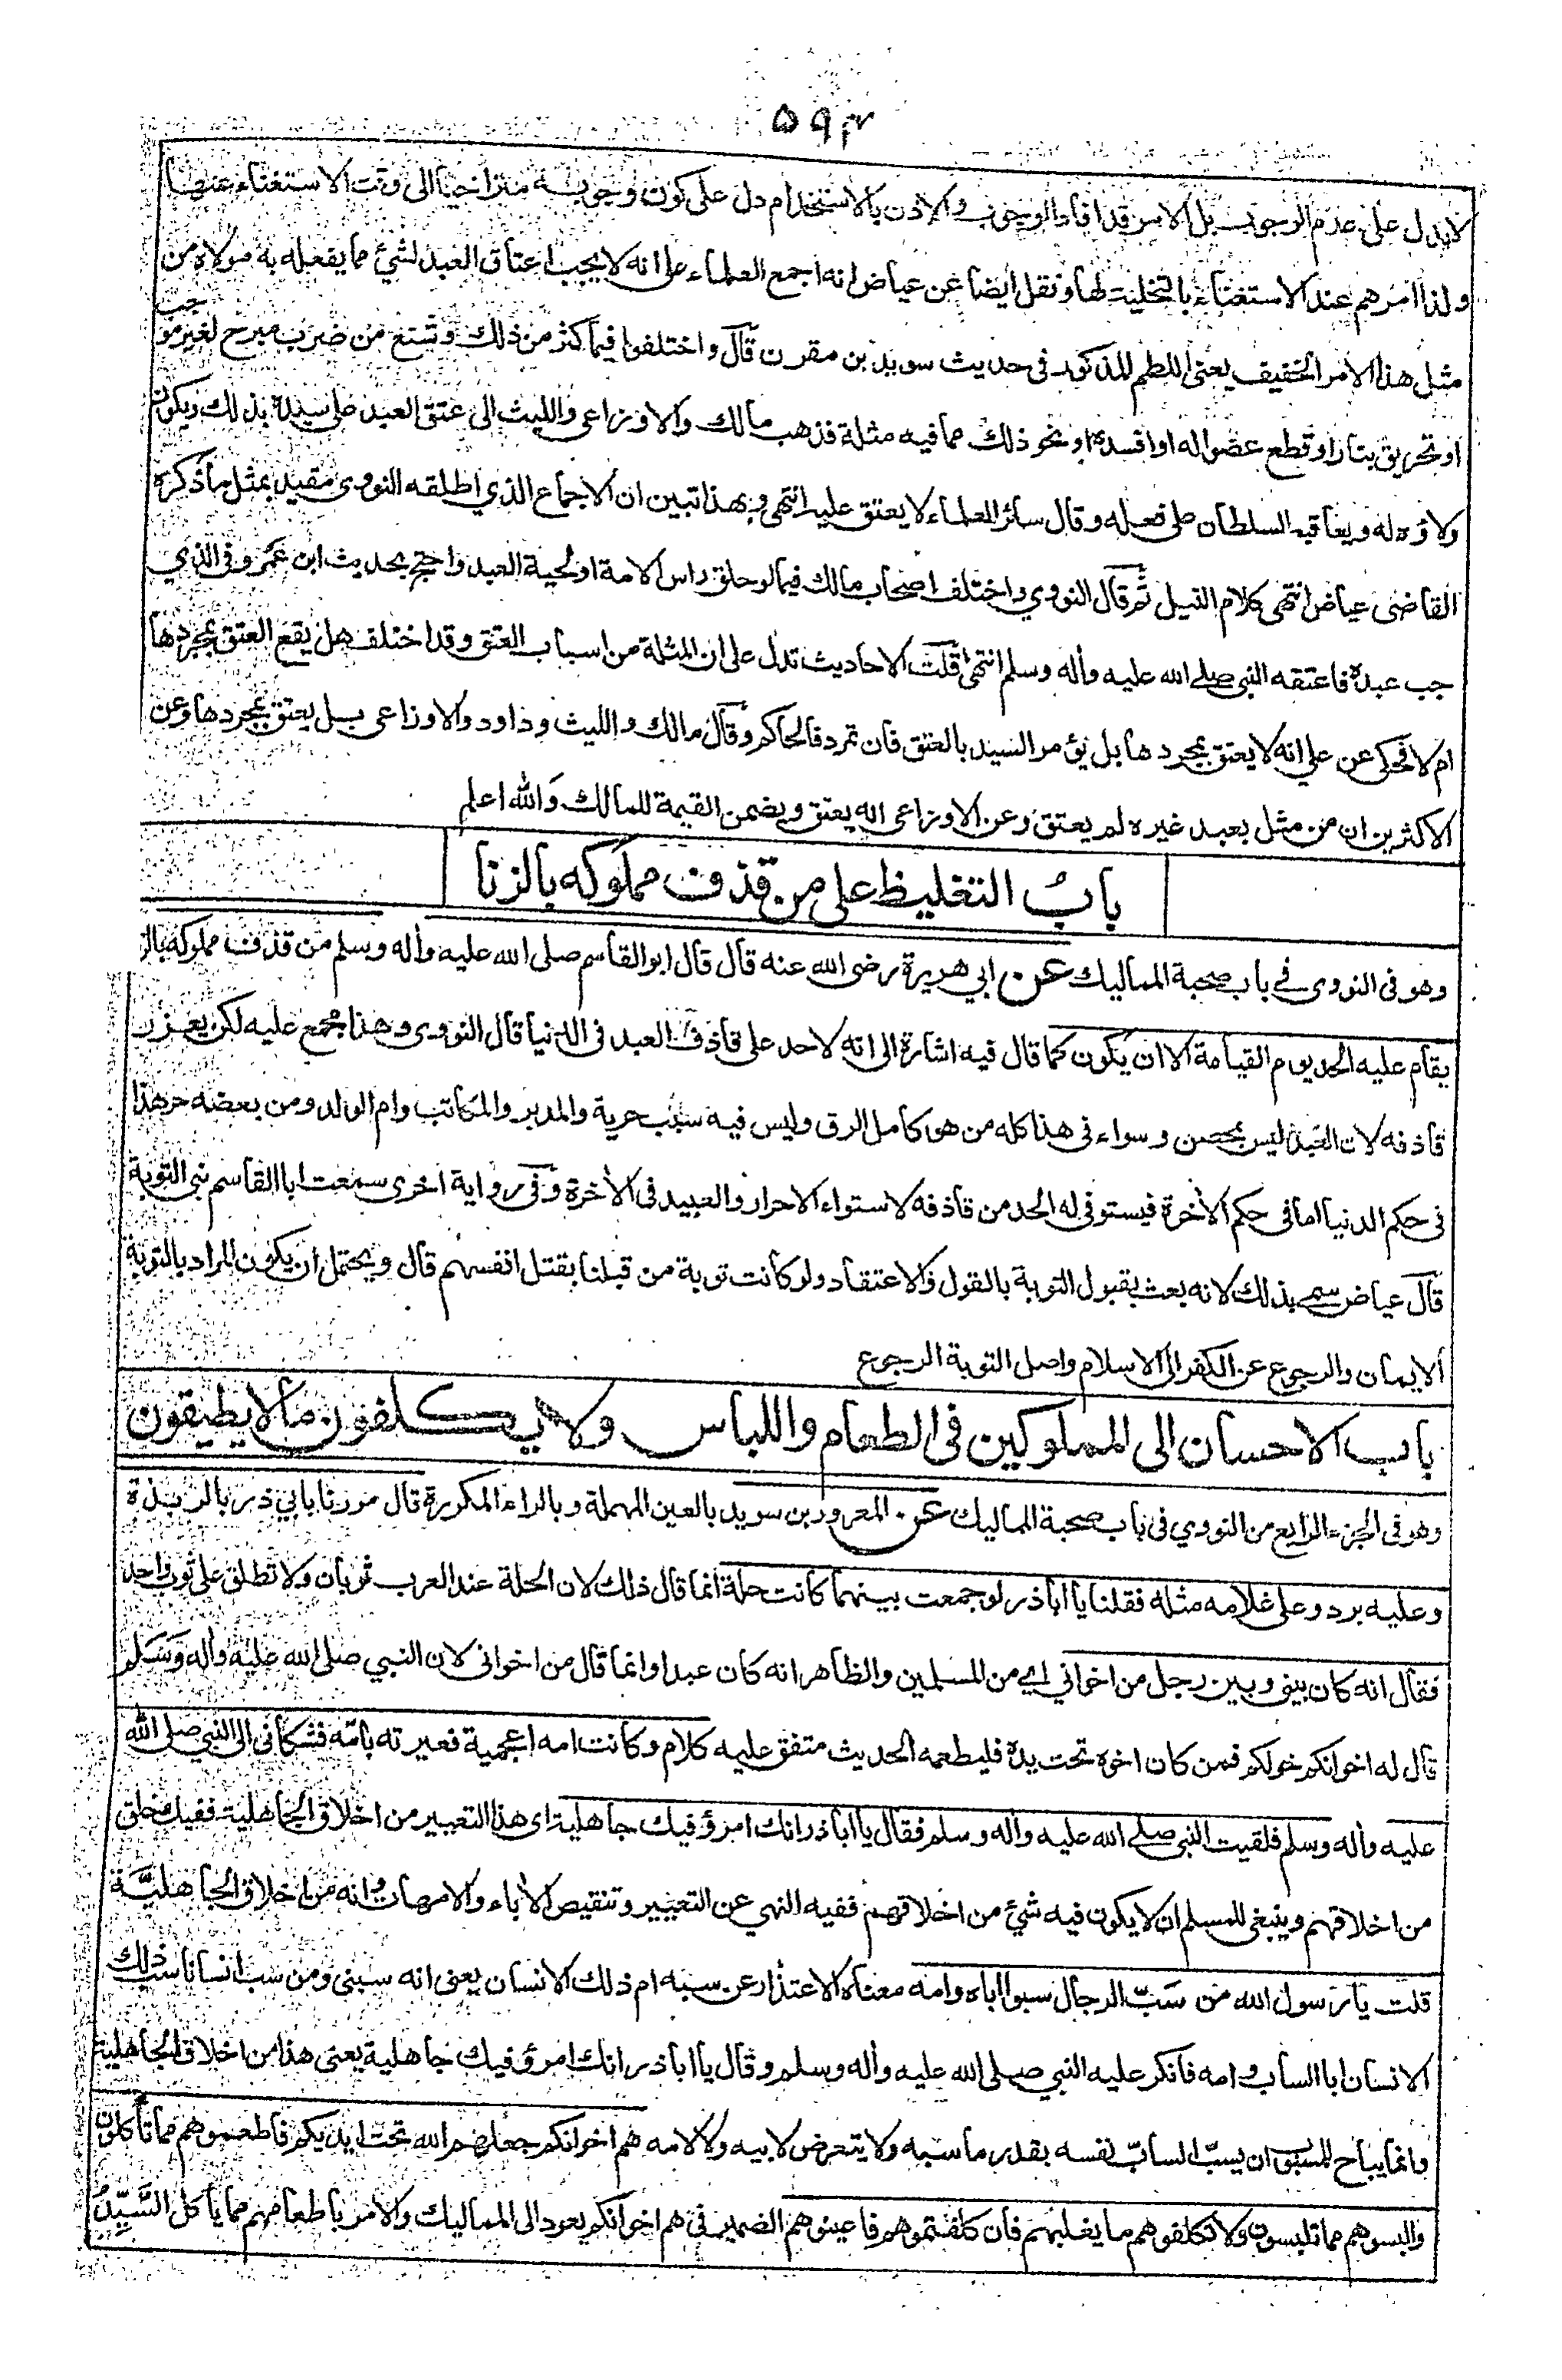 ۵۹۳
لا يدل على عدم الوجوب بل الامر قد افاد الوجوب والاذن بالاستخدام دل على كون وجوبه متراخيا الى وقت الاستغناء عنها
ولذا امرهم عند الاستغناء بالتخلية لها ونقل ايضا عن عياض انه اجمع العلماء على انه لا يجب اعتاق العبد لشئ مما يفعله به مولاه من
مثل هذا الامر الخفيف يعنى اللطم المذكور فى حديث سويد بن مقرن قال واختلفوا فيما كثر من ذلك وشنع من ضرب مبرح لغير موجب
او تحريق بنار او قطع عضو اله او افسده او نحو ذلك مما فيه مثلة فذهب مالك والاوزاعى والليث الى عتق العبد على سيده بذلك ويكون
ولاؤه له ويعاقبه السلطان على فعله وقال سائر العلماء لا يعتق عليه انتهى وبهذا تبين ان الاجماع الذي اطلقه النووى مقيد بمثل ما ذكره
القاضى عياض انتهى كلام النيل ثم قال النووي واختلف اصحاب مالك فيما لو حلق راس الامة او لحية العبد واحتج بحديث ابن عمرو فى الذي
جب عبده فاعتقه النبى صلے الله عليه واٰله وسلم انتهى قلت الاحاديث تدل على ان المثلة من اسباب العتق وقد اختلف هل يقع العتق بمجردها
ام لا فحكى عن علي انه لا يعتق بمجردها بل يؤمر السيد بالعتق فان تمرد فالحاكم وقال مالك والليث وداود والاوزاعى بل يعتق بمجردها وعن
الاكثرين ان من مثل بعبد غيره لم يعتق وعن الاوزاعى انه يعتق ويضمن القيمة للمالك والله اعلم
باب التغليظ على من قذف مملوكه بالزنا
وهو فى النووى فے باب صحبة المماليك عن ابي هريرة رضى الله عنه قال قال ابو القاسم صلى الله عليه واٰله وسلم من قذف مملوكه بالز
يقام عليه الحد يوم القيامة الا ان يكون كما قال فيه اشارة الى انه لا حد على قاذف العبد فى الدنيا قال النووى وهذا مجمع عليه لكن يعزر
قاذفه لان العبد ليس بمحصن وسواء فى هذا كله من هو كامل الرق وليس فيه سبب حرية والمدبر والمكاتب وام الولد ومن بعضه حر هذا
فى حكم الدنيا اما فى حكم الاٰخرة فيستوفى له الحد من قاذفه لاستواء الاحرار والعبيد فى الاٰخرة وفى رواية اخرى سمعت ابا القاسم نبى التوبة
قال عياض سمے بذلك لانه بعث بقبول التوبة بالقول والاعتقاد ولو كانت توبة من قبلنا بقتل انفسهم قال ويحتمل ان يكون المراد بالتوبة
الايمان والرجوع عن الكفر الى الاسلام واصل التوبة الرجوع
باب الاحسان الى المملوكين فى الطعام واللباس ولا يكلفون ما لا يطيقون
وهو فى الجزء الرابع من النووي فى باب صحبة المماليك عن المعرور بن سويد بالعين المهملة وبالراء المكررة قال مررنا بابي ذر بالربذة
وعليه برد وعلى غلامه مثله فقلنا يا اباذر لو جمعت بينهما كانت حلة انما قال ذلك لان الحلة عند العرب ثوبان ولا تطلق على ثوب واحد
فقال انه كان بينى وبين رجل من اخواني اے من المسلمين والظاهر انه كان عبدا وانما قال من اخوانى لان النبي صلى الله عليه واٰله وسلم
قال له اخوانكم خولكم فمن كان اخوه تحت يده فليطعمه الحديث متفق عليه كلام وكانت امه اعجمية فعيرته بامه فشكانى الى النبي صلى الله
عليه واٰله وسلم فلقيت النبى صلے الله عليه واٰله وسلم فقال يا اباذر انك امرؤ فيك جاهلية اى هذا التعيير من اخلاق الجاهلية ففيك خلق
من اخلاقهم وينبغى للمسلم ان لا يكون فيه شئ من اخلاقهم ففيه النهي عن التعيير وتنقيص الاٰباء والامهات وانه من اخلاق الجاهلية
قلت يا رسول الله من سب الرجال سبوا اباه وامه معناه الاعتذار عن سبه ام ذلك الانسان يعنى انه سبنى ومن سب انسانا سب ذلك
الانسان ابا الساب وامه فانكر عليه النبي صلى الله عليه واٰله وسلم وقال يا اباذر انك امرؤ فيك جاهلية يعنى هذا من اخلاق الجاهلية
وانما يباح للمسبوب ان يسب الساب نفسه بقدر ما سبه ولا يتعرض لابيه ولا لامه هم اخوانكم جعلهم الله تحت ايديكم فاطعموهم مما تاكلون
والبسوهم مما تلبسون ولا تكلفوهم ما يغلبهم فان كلفتموهم فاعينوهم الضمير فى هم اخوانكم يعود الى المماليك والامر باطعامهم مما ياكل السيد